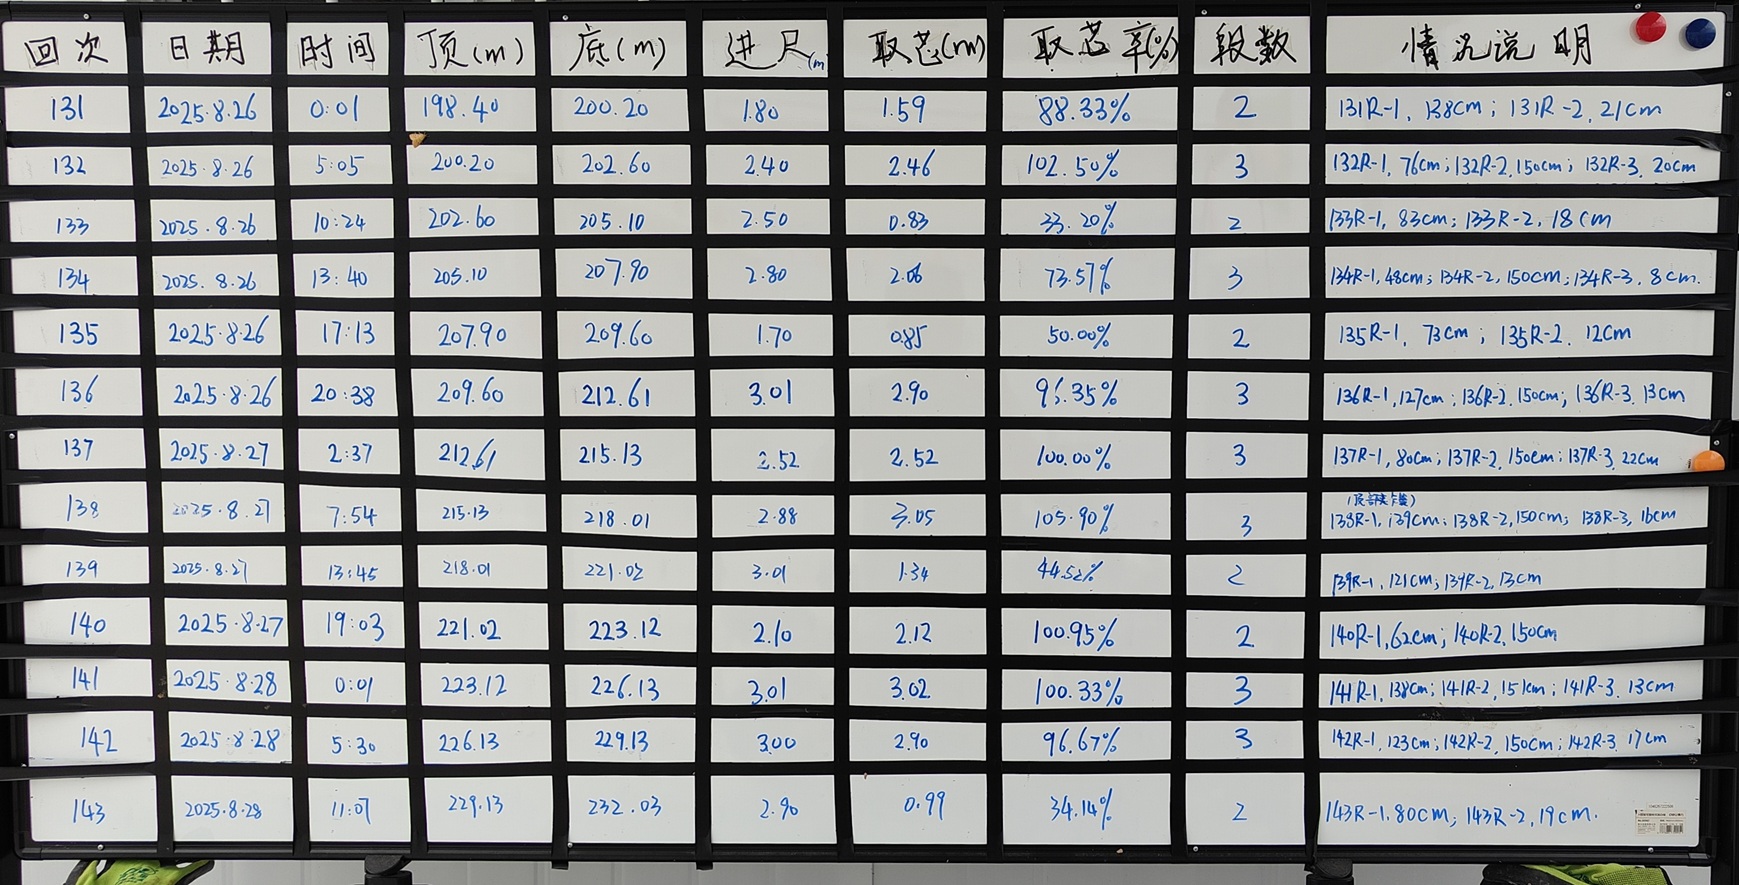 回次 日期 时间 顶(m) 底(m) 进尺(m 取芯(m) 取芯率(%) 段数 情况说明
131 2025.8.26 0:01 198.40 200.20 1.80 1.59 88.33% 2 131R-1, 138cm; 131R-2, 21cm
132 2025.8.26 5:05 200.20 202.60 2.40 2.46 102.50% 3 132R-1, 76cm; 132R-2, 150cm; 132R-3, 20cm
133 2025.8.26 10:24 202.60 205.10 2.50 0.83 33.20% 2 133R-1, 83cm; 133R-2, 18cm
134 2025.8.26 13:40 205.10 207.90 2.80 2.06 73.57% 3 134R-1, 48cm; 134R-2, 150cm; 134R-3, 8cm.
135 2025.8.26 17:13 207.90 209.60 1.70 0.85 50.00% 2 135R-1, 73cm; 135R-2, 12cm
136 2025.8.26 20:38 209.60 212.61 3.01 2.90 96.35% 3 136R-1, 127cm; 136R-2, 150cm; 136R-3, 13cm
137 2025.8.27 2:37 212.61 215.13 2.52 2.52 100.00% 3 137R-1, 80cm; 137R-2, 150cm; 137R-3, 22cm
138 2025.8.27 7:54 215.13 218.01 2.88 3.05 105.90% 3 138R-1, 139cm; 138R-2, 150cm; 138R-3, 16cm
139 2025.8.27 13:45 218.01 221.02 3.01 1.34 44.52% 2 139R-1, 121cm; 139R-2, 13cm
140 2025.8.27 19:03 221.02 223.12 2.10 2.12 100.95% 2 140R-1, 62cm; 140R-2, 150cm
141 2025.8.28 0:01 223.12 226.13 3.01 3.02 100.33% 3 141R-1, 138cm; 141R-2, 151cm; 141R-3, 13cm
142 2025.8.28 5:30 226.13 229.13 3.00 2.90 96.67% 3 142R-1, 123cm; 142R-2, 150cm; 142R-3, 17cm
143 2025.8.28 11:07 229.13 232.03 2.90 0.99 34.14% 2 143R-1, 80cm; 143R-2, 19cm.